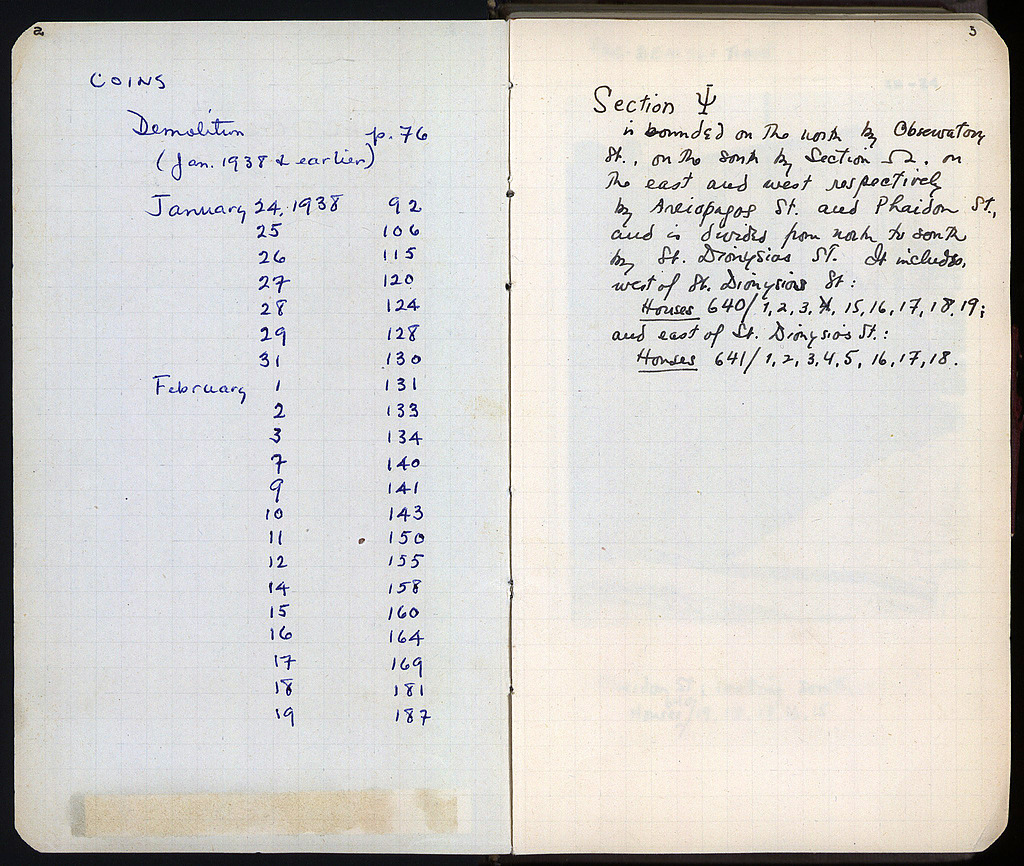 2
COINS
Demolition p. 76
(Jan. 1938 & earlier)
January 24, 1938 92
25 106
26 115
27 120
28 124
29 128
31 130
February 1 131
2 133
3 134
7 140
9 141
10 143
11 150
12 155
14 158
15 160
16 164
17 169
18 181
19 187
3
Section Ψ
is bounded on the north by Observatory
St., on the south by Section Ω, on
the east and west respectively
by Areiopagos St. and Phaidon St.,
and is divided from north to south
by St. Dionysios St. It includes,
west of St. Dionysios St:
Houses 640/1, 2, 3, 15, 16, 17, 18, 19;
and east of St. Dionysios St.:
Houses 641/1, 2, 3, 4, 5, 16, 17, 18.